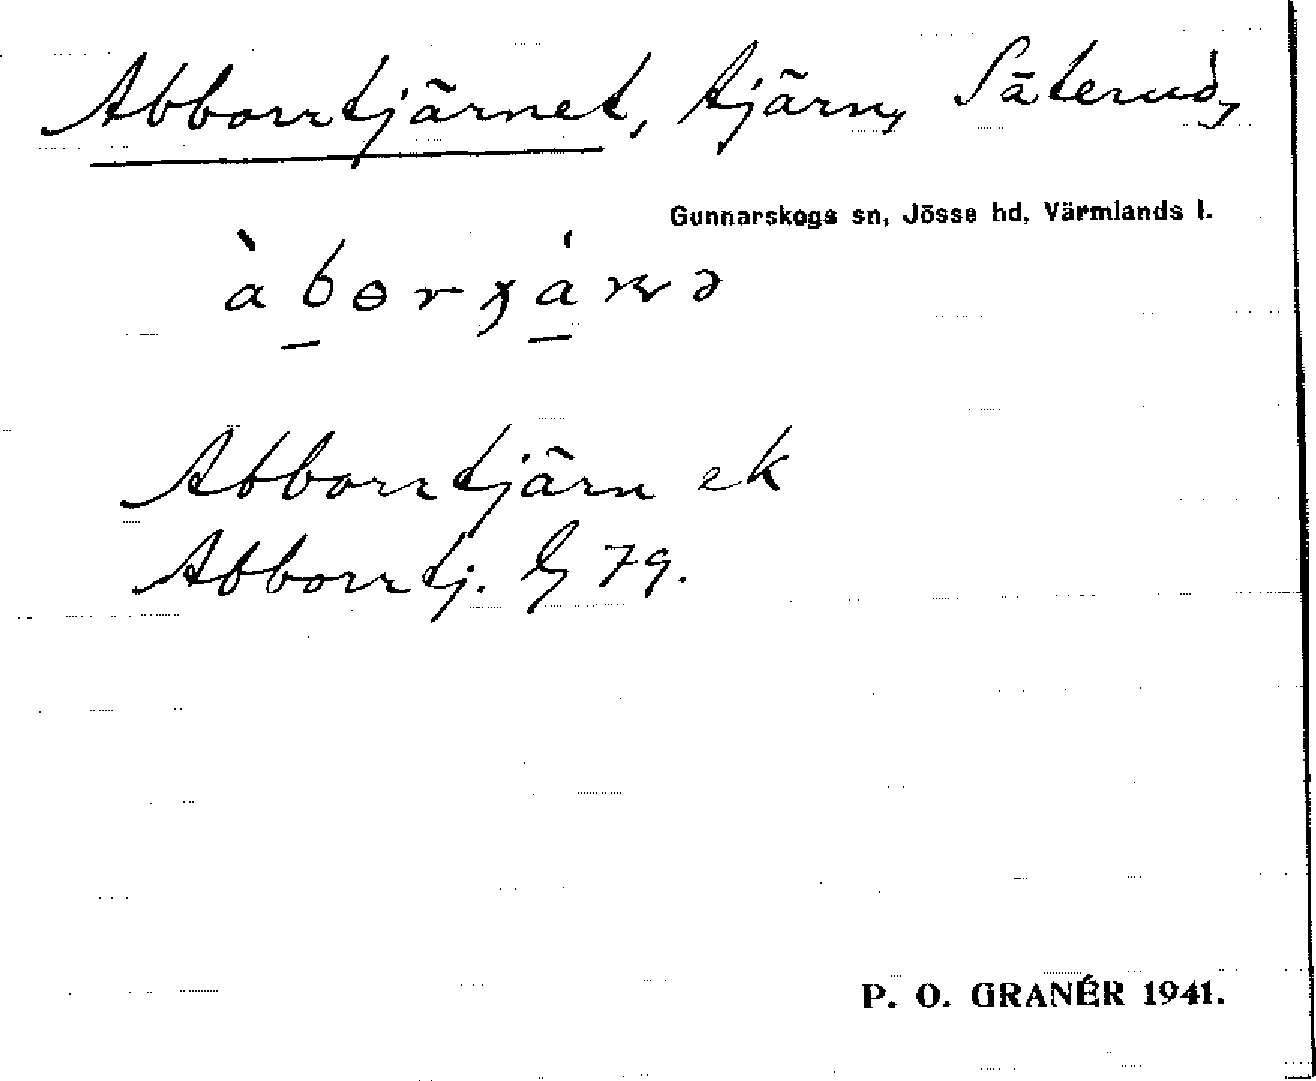 Abborrtjärnet, tjärn, Säterud,
Gunnarskogs sn, Jösse hd, Värmlands l.
Abborrtjärn ek
Abborrtj. G 79.
P. O. GRANÉR 1941.